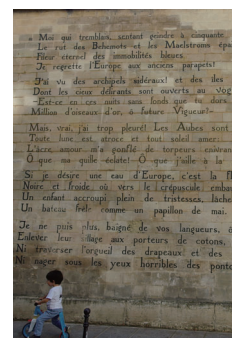 Moi qui tremblais, sentant geindre à cinquante
Le rut des Béhémots et les Maelstroms épa
Fileur éternel des immobilités bleues,
Je regrette l'Europe aux anciens parapets!
J'ai vu des archipels sidéraux! et des îles
Dont les cieux délirants sont ouverts au vog
-Est-ce en ces nuits sans fonds que tu dors
Million d'oiseaux d'or, ô future Vigueur?-
Mais, vrai, j'ai trop pleuré! Les Aubes sont
Toute lune est atroce et tout soleil amer:
L'âcre amour m'a gonflé de torpeurs enivran
O que ma quille éclate! O que j'aille à la
Si je désire une eau d'Europe, c'est la fl
Noire et froide où vers le crépuscule embau
Un enfant accroupi plein de tristesses, lâche
Un bateau frêle comme un papillon de mai.
Je ne puis plus, baigné de vos langueurs, ô
Enlever leur sillage aux porteurs de cotons,
Ni traverser l'orgueil des drapeaux et des
Ni nager sous les yeux horribles des ponto